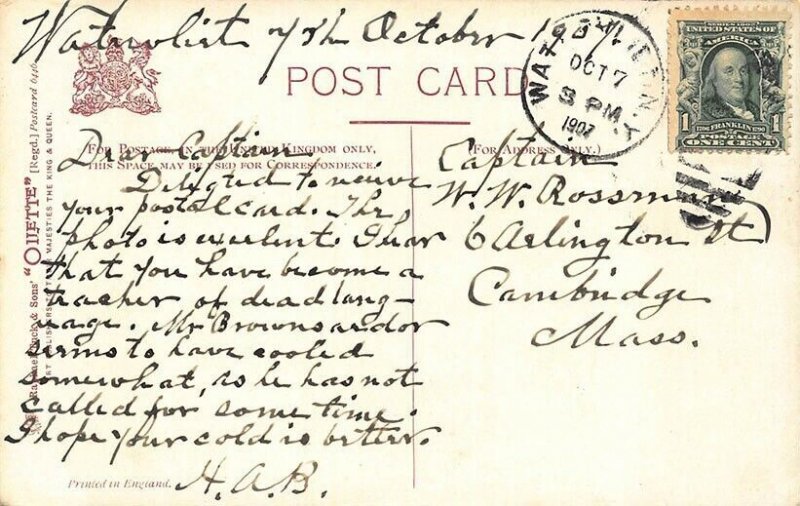 Watervliet 7th October 1907.
POST CARD
WATERVLIET, N.Y.
OCT 7
3 PM
1907
SERIES 1902
UNITED STATES OF
AMERICA
1790 FRANKLIN 1790
POSTAGE
1 ONE CENT 1
FOR POSTAGE IN THE UNITED KINGDOM ONLY,
THIS SPACE MAY BE USED FOR CORRESPONDENCE.
(FOR ADDRESS ONLY.)
Dear Captain
Delighted to receive
your postal card. The
photo is excellent. I hear
that you have become a
teacher of dead lang-
uage. Mr Brown's ardor
seems to have cooled
somewhat, as he has not
called for some time.
I hope your cold is better.
H.A.B.
Captain
W. W. Rossman
6 Arlington St
Cambridge
Mass.
Raphael Tuck & Sons' "OILETTE" [Regd.] Postcard 6446
MAJESTIES THE KING & QUEEN.
Printed in England.